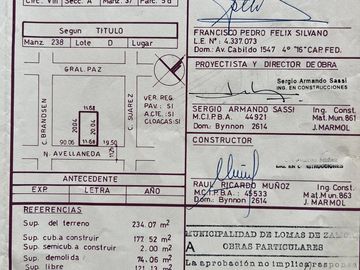 Circ. VIII Secc. A Manz. 37 Parc. 5d
Segun TITULO
Manz. 238 Lote D Lugar
GRAL. PAZ
C. BRANDSEN
C. SUAREZ
11.68
20.04
20.04
11.68
C. 90.06
19.50
N. AVELLANEDA
VER. REG.
PAV. : SI
A.CTE. : SI
CLOACAS: SI
ANTECEDENTE
EXP. LETRA AÑO
REFERENCIAS
Sup. del terreno 234.07 m²
Sup. cub a construir 177.52 m²
Sup. semicub a constr. 2.00 m²
Sup. demoler 74.06 m²
Sup. libre 121.13 m²
FRANCISCO PEDRO FELIX SILVANO
L.E. Nº : 4.337.073
Dom. Av. Cabildo 1547 4º "16" CAP. FED.
PROYECTISTA Y DIRECTOR DE OBRA
Sergio Armando Sassi
ING. EN CONSTRUCCIONES
SERGIO ARMANDO SASSI Ing. Const.
M.C.I.P.B.A. 44921 Mat. Mun. 861
Dom. Bynnon 2614 J. MARMOL
CONSTRUCTOR
RAUL RICARDO MUÑOZ Ing. Const.
M.C.I.P.B.A. : 45533 Mat. Mun. 863
Dom. Bynnon 2614 J. MARMOL
MUNICIPALIDAD DE LOMAS DE ZAMO
OBRAS PARTICULARES
A
La aprobación no implica responsa